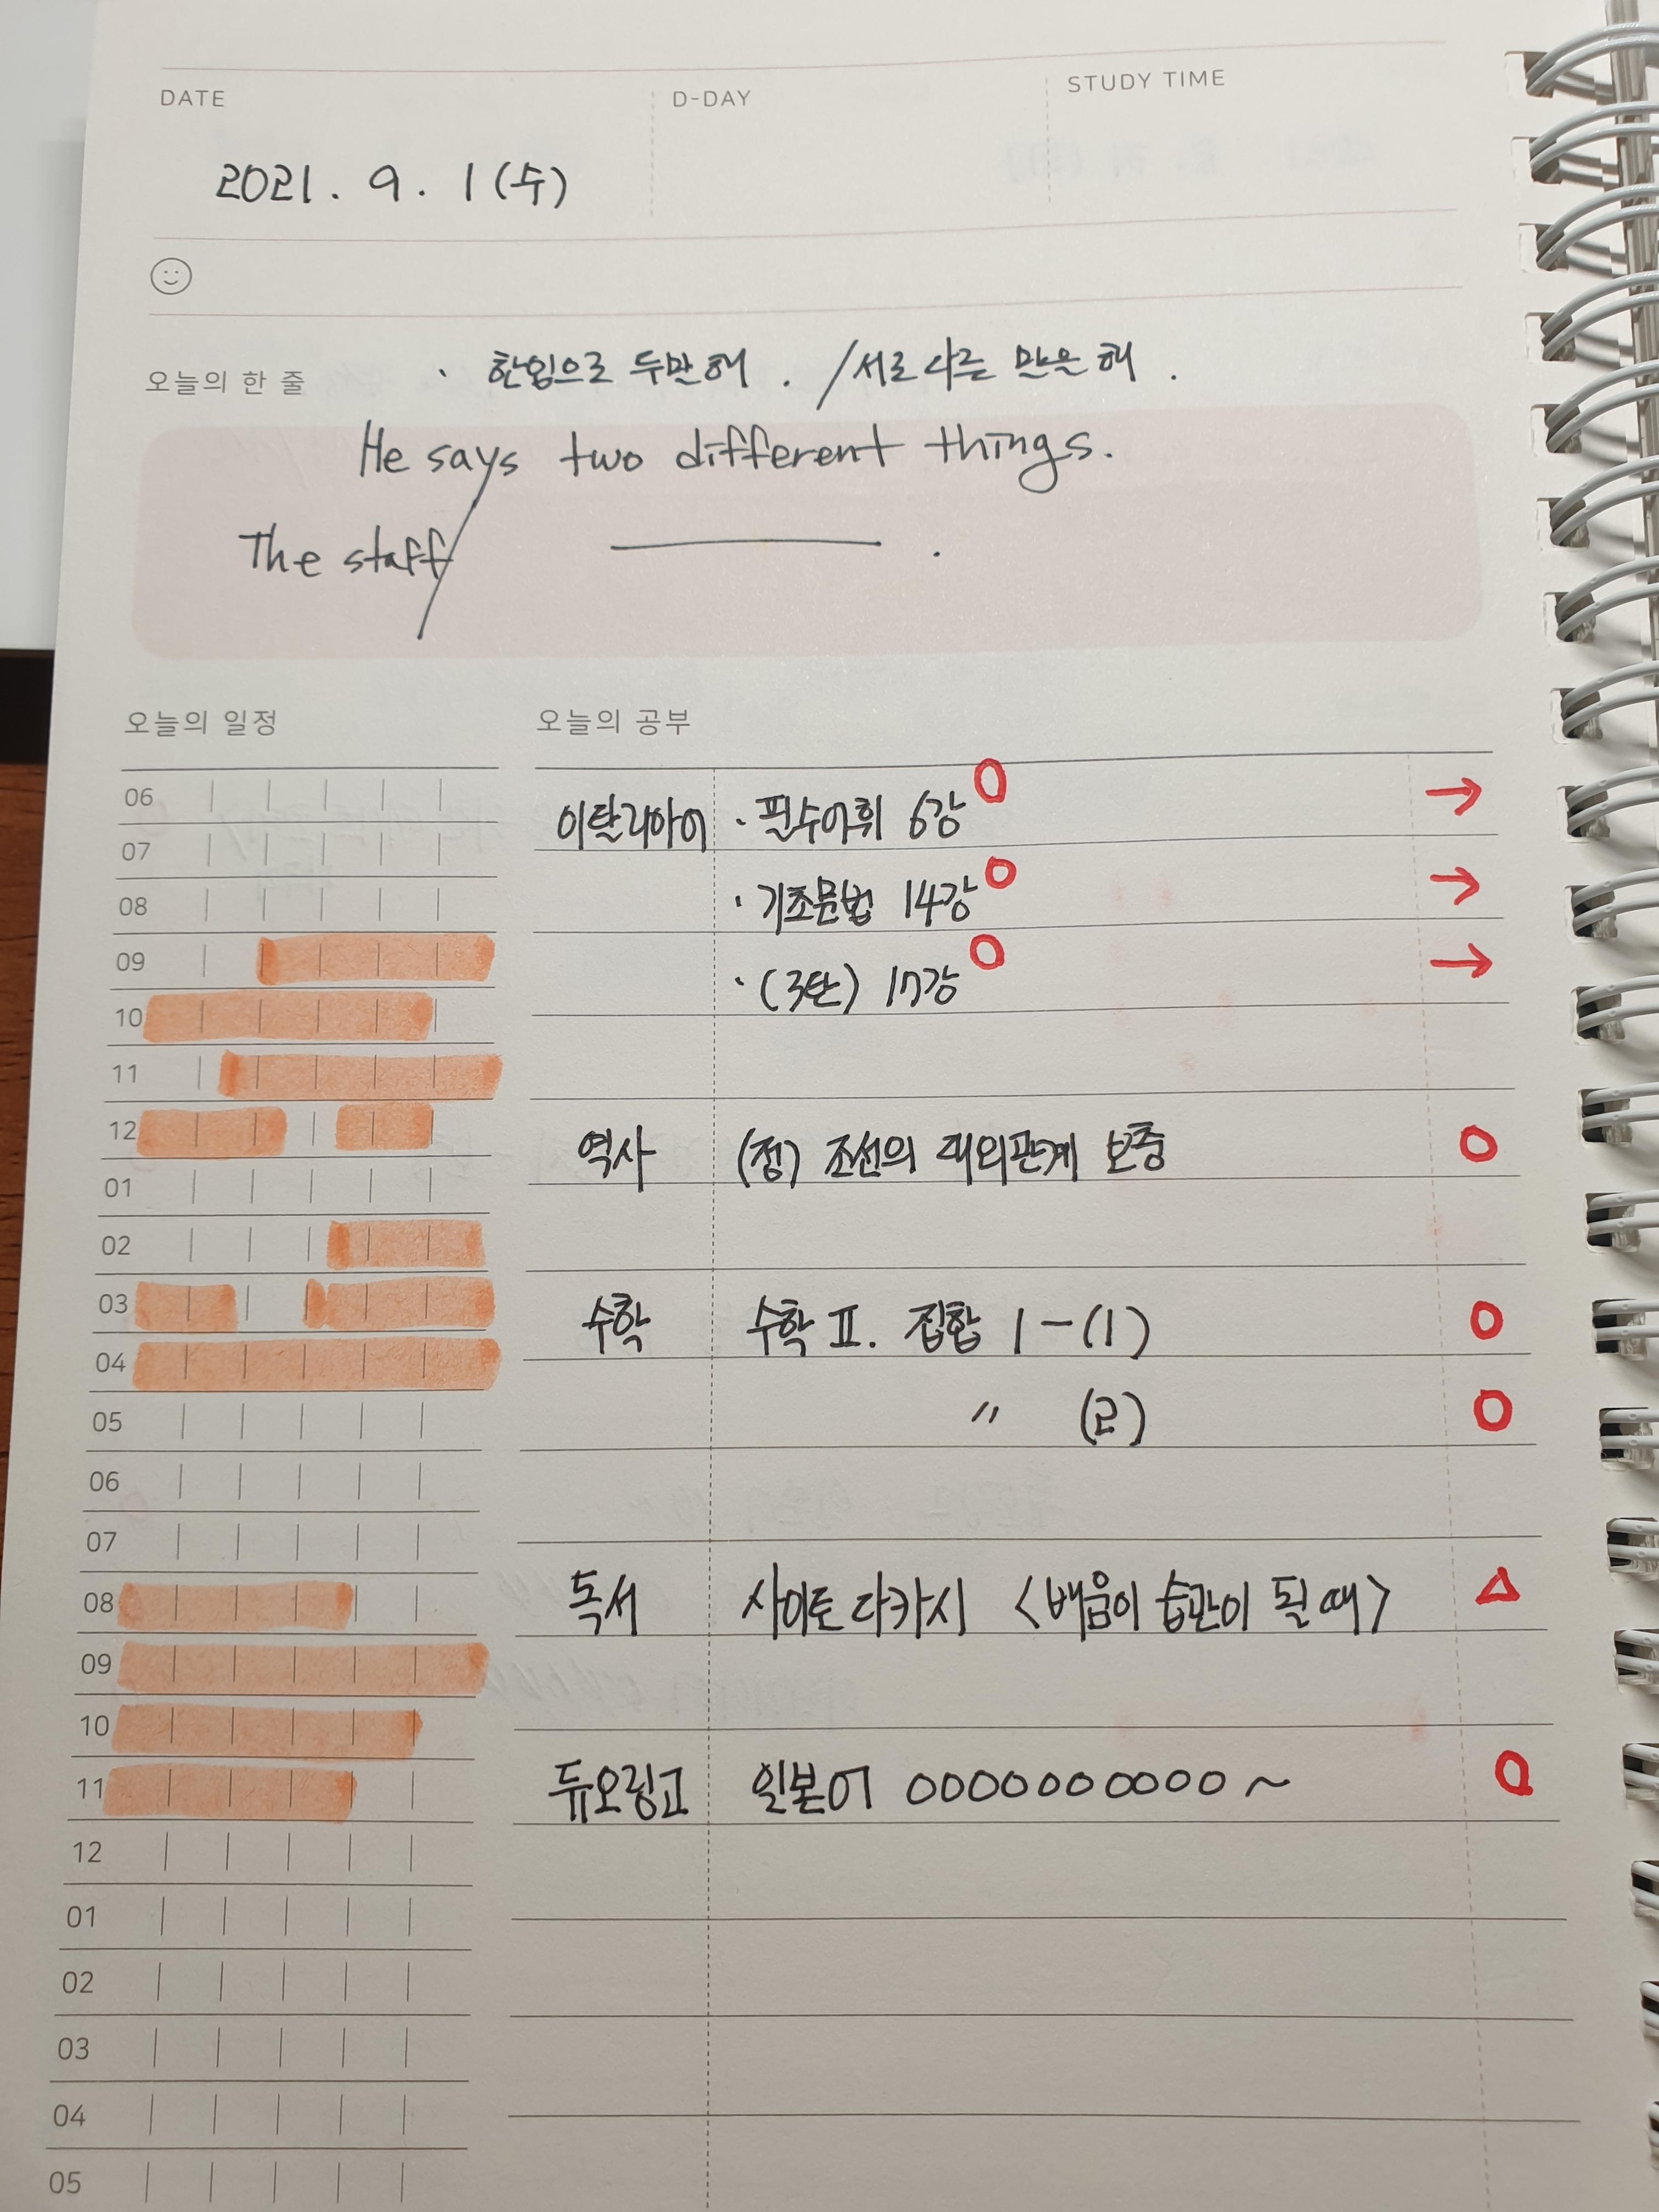 DATE D-DAY STUDY TIME
2021. 9. 1 (수)
오늘의 한 줄 · 한입으로 두말 해 . / 서로 다른 말을 해 .
He says two different things.
The staff / ———— .
오늘의 일정 오늘의 공부
06 이탈리아어 · 필수어휘 6강 O →
07
· 기초문법 14강 O →
08
09 · (3탄) 17강 O →
10
11
12 역사 (정) 조선의 대외관계 보충 O
01
02
03 수학 수학 II. 집합 1-(1) O
04
05 〃 (2) O
06
07
08 독서 사이토 다카시 <배움이 습관이 될 때> △
09
10
11 듀오링고 일본어 OOOOOOOOOO ~ O
12
01
02
03
04
05